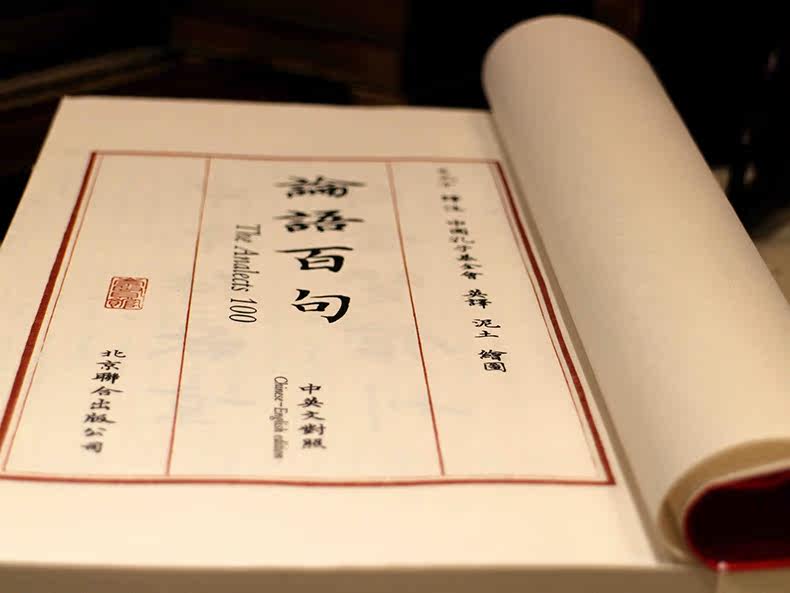 譯注 中國孔子基金會 英譯 泥土 繪圖
論語百句
The Analects 100
中英文對照
Chinese-English edition
北京聯合出版公司